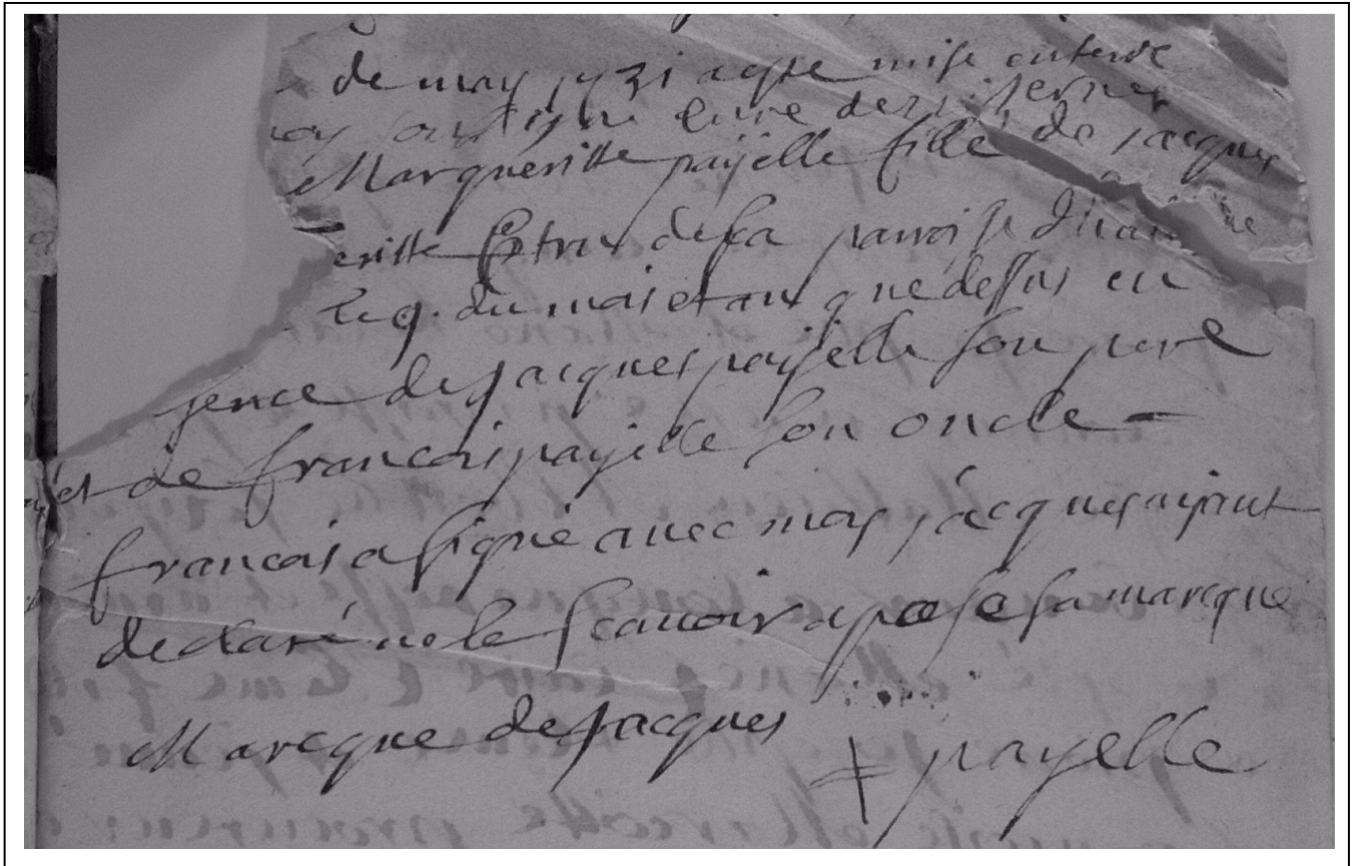 de may 1731 a este mise enterre
Margueritte payelle fille de Jacques
eritte Estrux de sa parroisse
le 9. du mois et an que dessus en
sence de Jacques payelle son pere
et de francois payelle son oncle
francois a signé avec moy, jacques ayant
declaré ne le scavoir a posé sa marque
Marcque de Jacques payelle